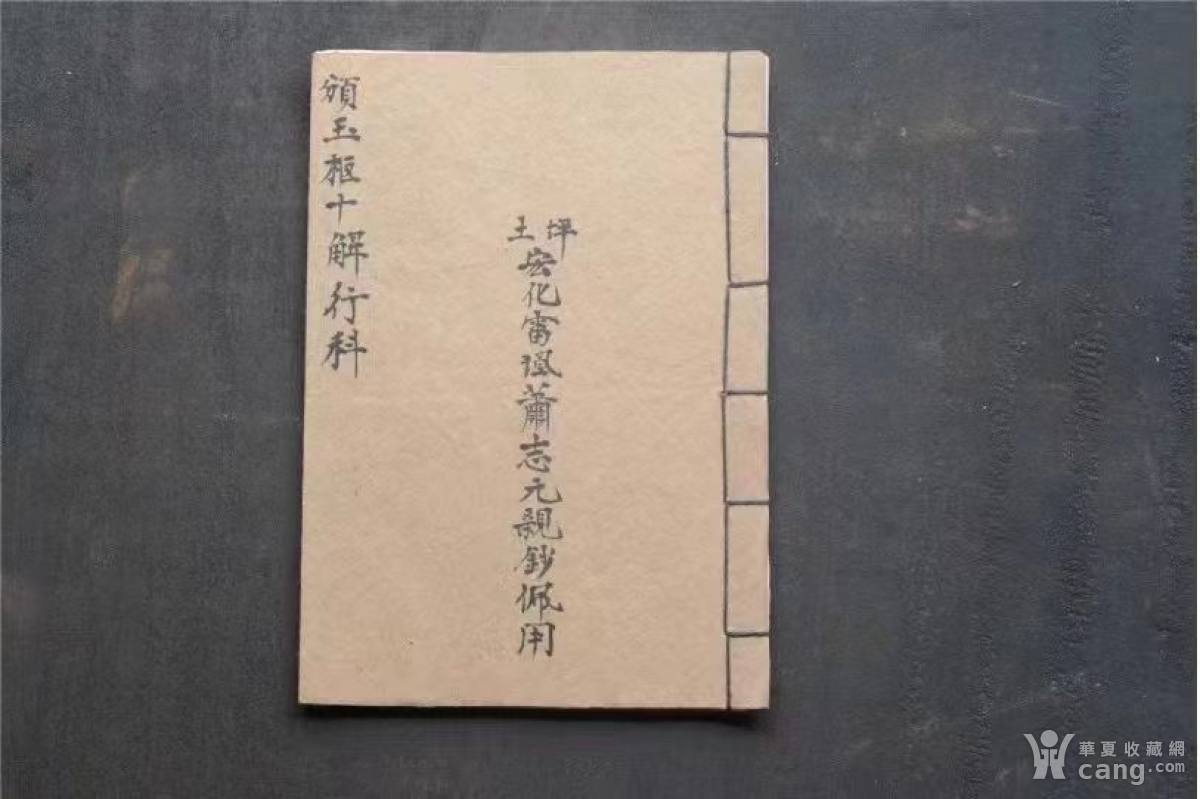 頒玉枢十解行科
土坪
宏化雷蕭志元親鈔佩用
華夏收藏網
cang.com